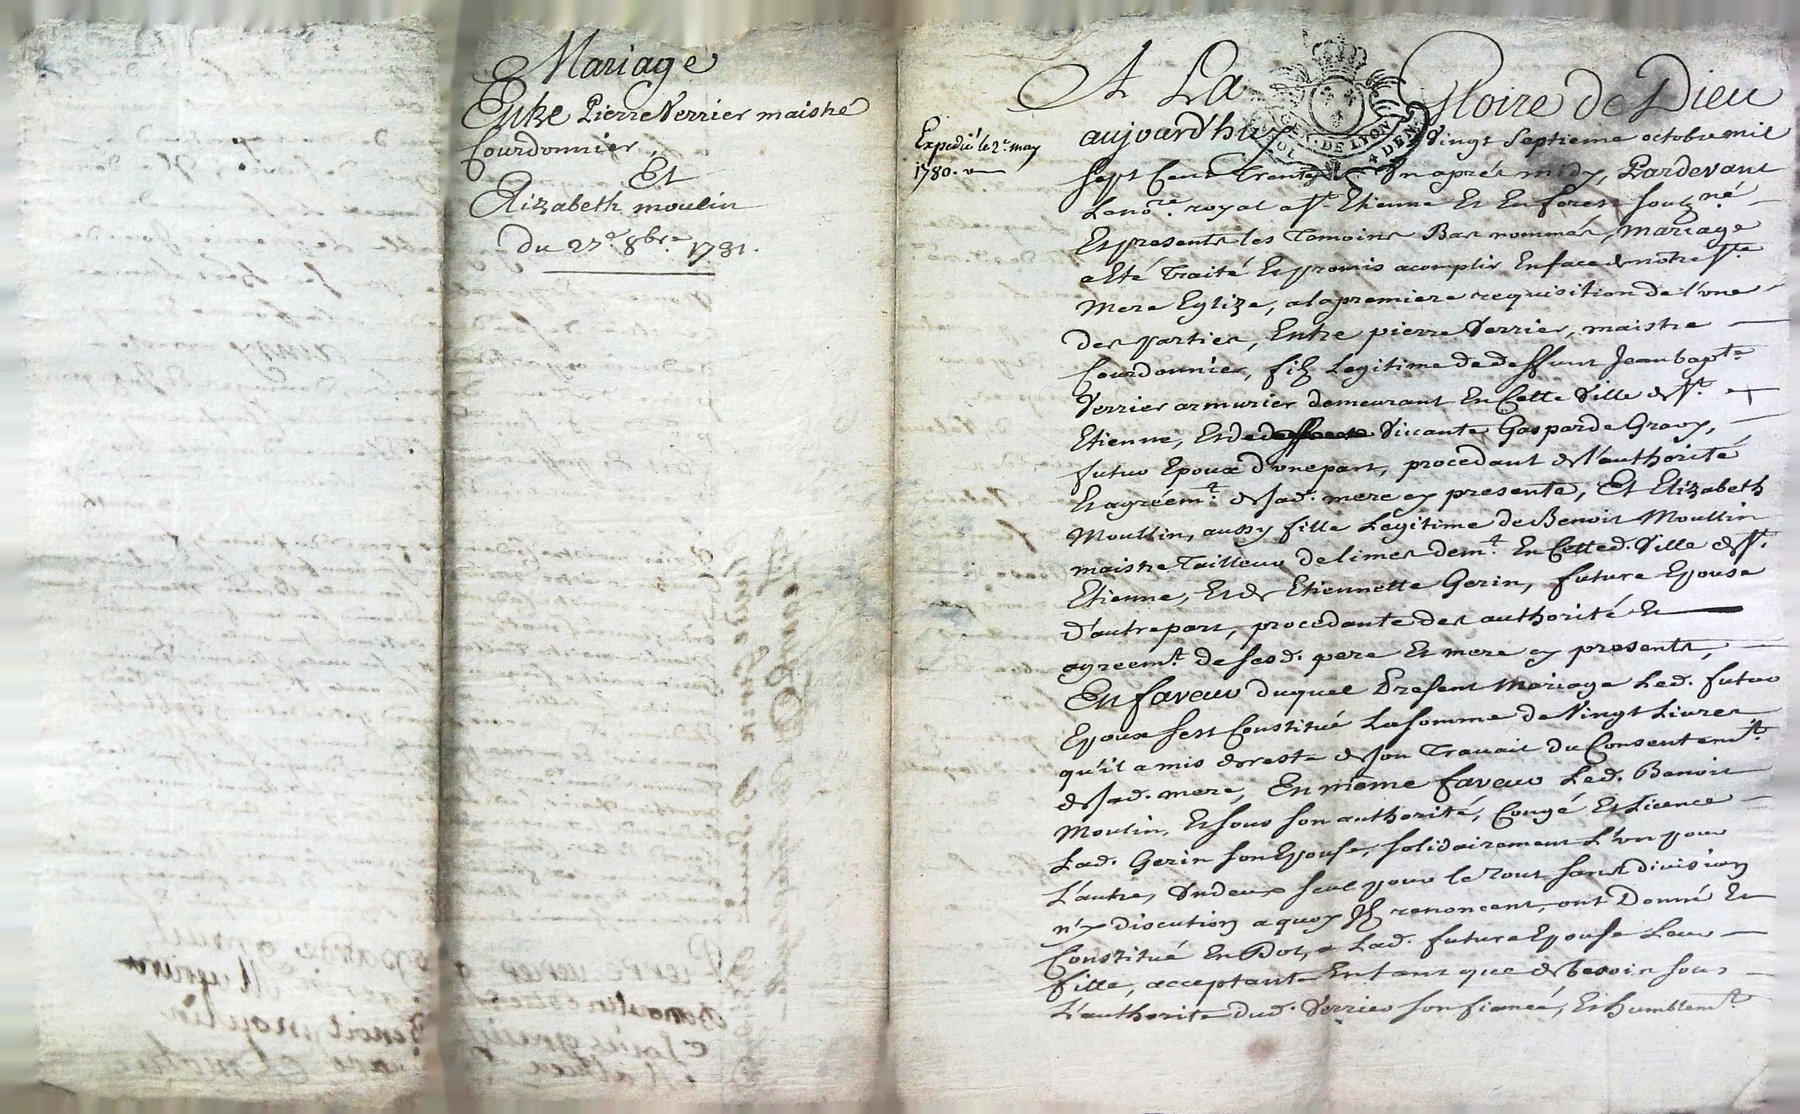 Mariage
Entre Pierre Verrier maistre
Courdonnier
Et
Elizabeth moulin
Du 27e 8bre 1731.
Expedié le 2e may
1780.
A La Gloire de Dieu
aujourd'huy Vingt Septieme octobre mil
Sept Cent Trente un aprés midy, Pardevant
Le nore. royal a St. Etienne Et En forest souzné.
Et presents les Temoins Bas nommés, Mariage
a Eté Traité Et promis acomplir En face de notre Ste.
Mere Eglize, a la premiere requisition de l'une
des parties, Entre pierre Verrier, maistre
Courdonnier, filz Legitime de deffunt Jean bapte.
Verrier armurier demeurant En Cette Ville de St.
Etienne, Et de Vivante Gasparde Gravy,
futur Epoux d'une part, procedant de l'authorité
Et agréemt. de sad. mere cy presente, Et Elizabeth
Moullin, aussy fille Legitime de Benoit Moullin
maistre Tailleur de limes demt. En Cetted. Ville de St.
Etienne, Et de Etiennette Gerin, future Epouse
D'autre part, procedante des authorité Et
agreemt. de sesd. pere Et mere cy presents,
En faveur duquel Present Mariage Led. futur
Epoux s'est Constitué La somme de Vingt Livres
qu'il a mis de reste de son Travail du Consentemt.
de sad. mere, En même faveur Led. Benoit
Moulin, Et sous son authorité, Congé Et Licence
Lad. Gerin son Epouse, solidairement L'un pour
L'autre, Un deux seul pour le Tout sans division
n'y discution a quoy Ilz renoncent, ont Donné Et
Constitué En Dot, a Lad. future Epouse Leur
fille, acceptante En tant que de besoin sous
L'authorite dud. Verrier son fiancé, Et humblemt.
GEN. DE LYON
4 DEN.